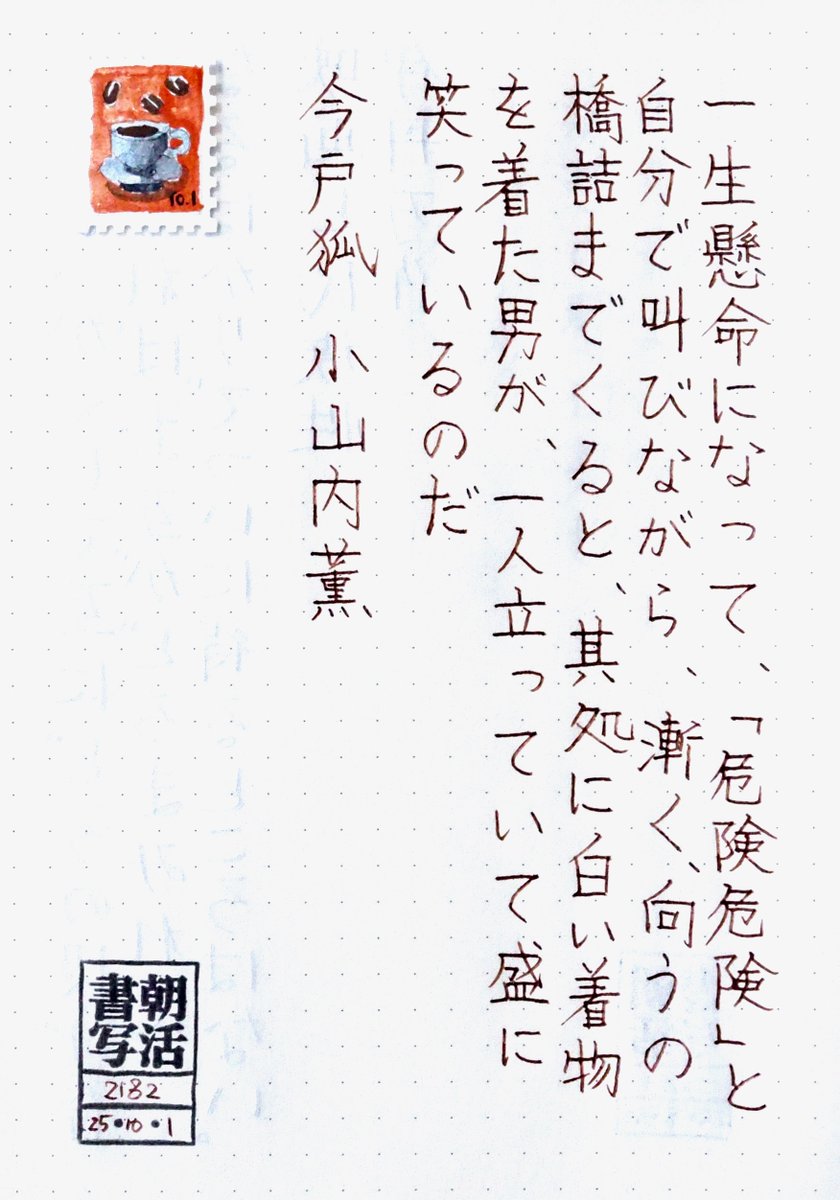 一生懸命になって、「危険危険」と
自分で叫びながら、漸く、向うの
橋詰までくると、其処に白い着物
を着た男が、一人立っていて盛に
笑っているのだ
今戸狐　小山内薫
10.1
朝活
書写
2182
25•10•1